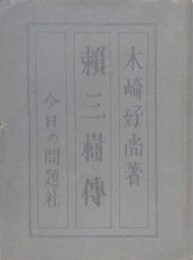 木崎好尚著
賴三樹傳
今日の問題社